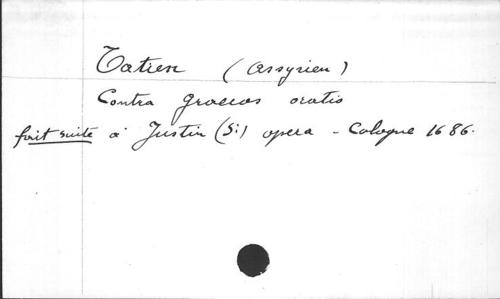 Tatien (Assyrien)
Contra graecos oratio
fait suite à Justin (St) opera - Cologne 1686.